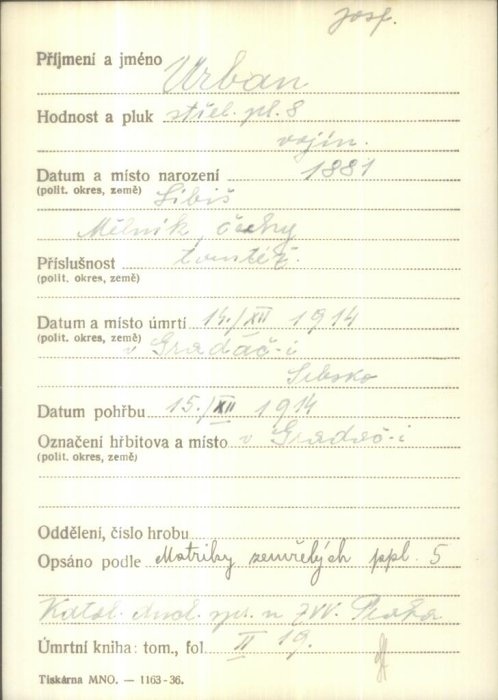 Josf.
Příjmení a jméno Urban
Hodnost a pluk střel. pl. 8
vojín.
Datum a místo narození 1881
(polit. okres, země) Libiš
Mělník, Čechy
Příslušnost tamtéž.
(polit. okres, země)
Datum a místo úmrtí 14./XII 1914
(polit. okres, země) v Gradáč-i
Srbsko
Datum pohřbu 15./XII 1914
Označení hřbitova a místo v Gradáč-i
(polit. okres, země)
Oddělení, číslo hrobu
Opsáno podle Matriky zemřelých ppl. 5
Katol. duch. spr. u ZVV. Praha
Úmrtní kniha: tom., fol II 19.
Tiskárna MNO. — 1163-36.